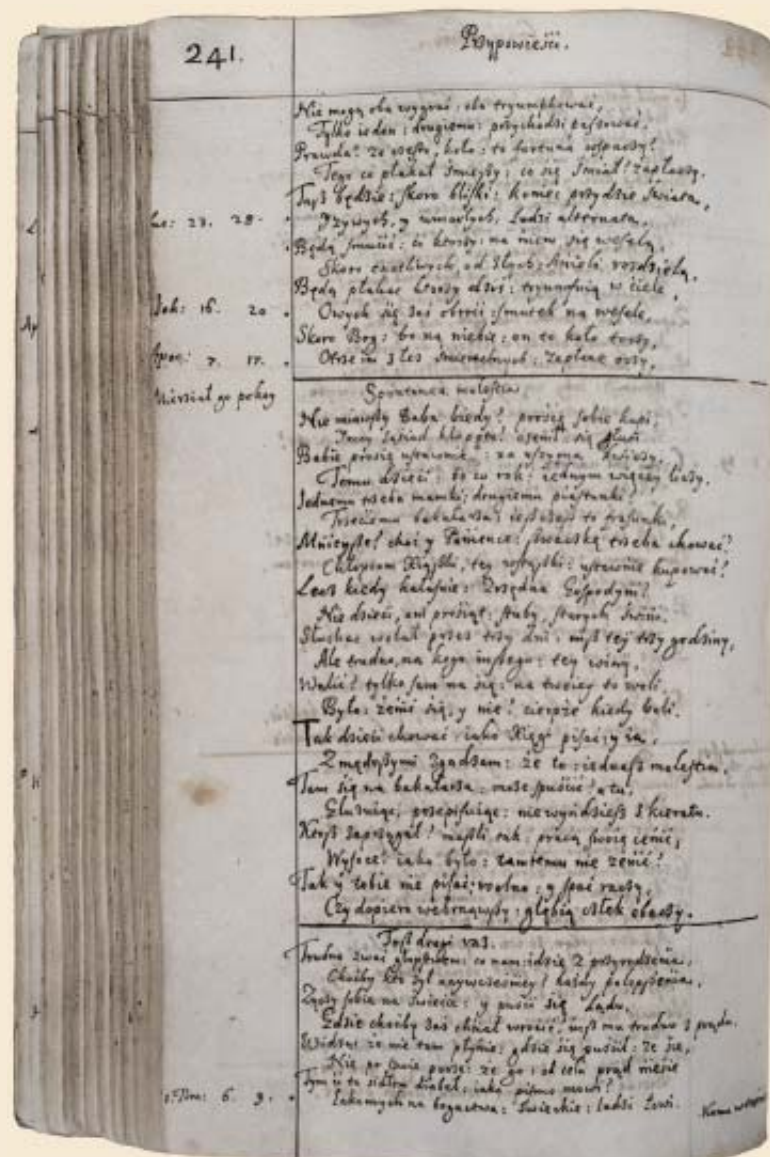 241.
Przypowieści.
Nie mogą oba wygrać: oba tryumphować,
Tylko ieden: drugiemu: przychodzi
Prawda? że często, koło: to fortuna
Tego co płakał śmieszy; co się śmiał? zapłaczy.
Tuż będzie: skoro bliski: koniec przydzie świata,
Żywych, y umarłych, ludzi alternata,
Luc: 23. 28.
Będą smucić: ci ktorzy: na niem się weselą,
Skoro cnotliwych, od złych: Anieli rozdzielą,
Będą płakać ktorzy dziś: tryumfuią w ciele,
Joh: 16. 20
Owych się zaś obroci: smutek na wesele,
Skoro Bog: bo na niebie: on to koło toczy,
Apoc: 7. 17.
Otrze im z łez śmiertelnych: zapłane oczy,
Nierział go pokoy
Spontanea molestia
Nie miawszy Baba biedy? prosię sobie kupi;
sąsiad kłopota? ożenił się głupi
Babie prosię ustawnie: za uszyma kwiczy,
Temu dzieci: bo co rok: iednym więcey liczy.
Jednemu trzeba mamki; drugiemu piastunki?
Trzeciemu bakałarza; to frasunki,
Mnieysze! choć y Panience: trzeba chować?
Chłopcom Xiąszki, też: ustawnie kupować?
Lecz kiedy hałaśnie: Zrzędna Gospodyni?
Nie dzieci, ani prosiąt: starych świni.
Słuchać wolał przez trzy dni: niż tey trzy godziny,
Ale trudno, na kogo inszego: tey winy,
Walić? tylko sam na się: na twoiey to woli
Było: żenić się, y nie? cierpże kiedy boli.
Tak dzieci chować iako Xięgi pisać: y ia,
Z mędrszymi zgadzam: że to: iednasz molestia,
Tam się na bakałarza: może spuścić? a tu,
przepisuiąc: niewynidziesz z kieratu.
Ktoż zaprzągał? iesli tak: pracą swoię cenić,
Wysoce? iako było: tamtemu nie żenić?
Tak y tobie nie pisać: wolno: y spać raczy,
Czy dopiero webrnąwszy: głębią człek obaczy.
Tosz drugi raz.
Trudno zwać głupstwem: co nam: idzie z przyrodzenia,
Choćby kto był naywcześniey? każdy polepszenia,
Życzy sobie na świecie: y puści się lądu,
Gdzie choćby zaś chciał wrocić, iusz mu trudno z prądu.
Widząc że nie tam płynie: gdzie się puścił: że źle,
Nie po: ze go: od celu prąd niesie
Tym iż to sidłem diabeł: iako pismo mowi?
1. Tim: 6. 9.
Łakomych na bogactwa: świeckie: ludzi łowi.